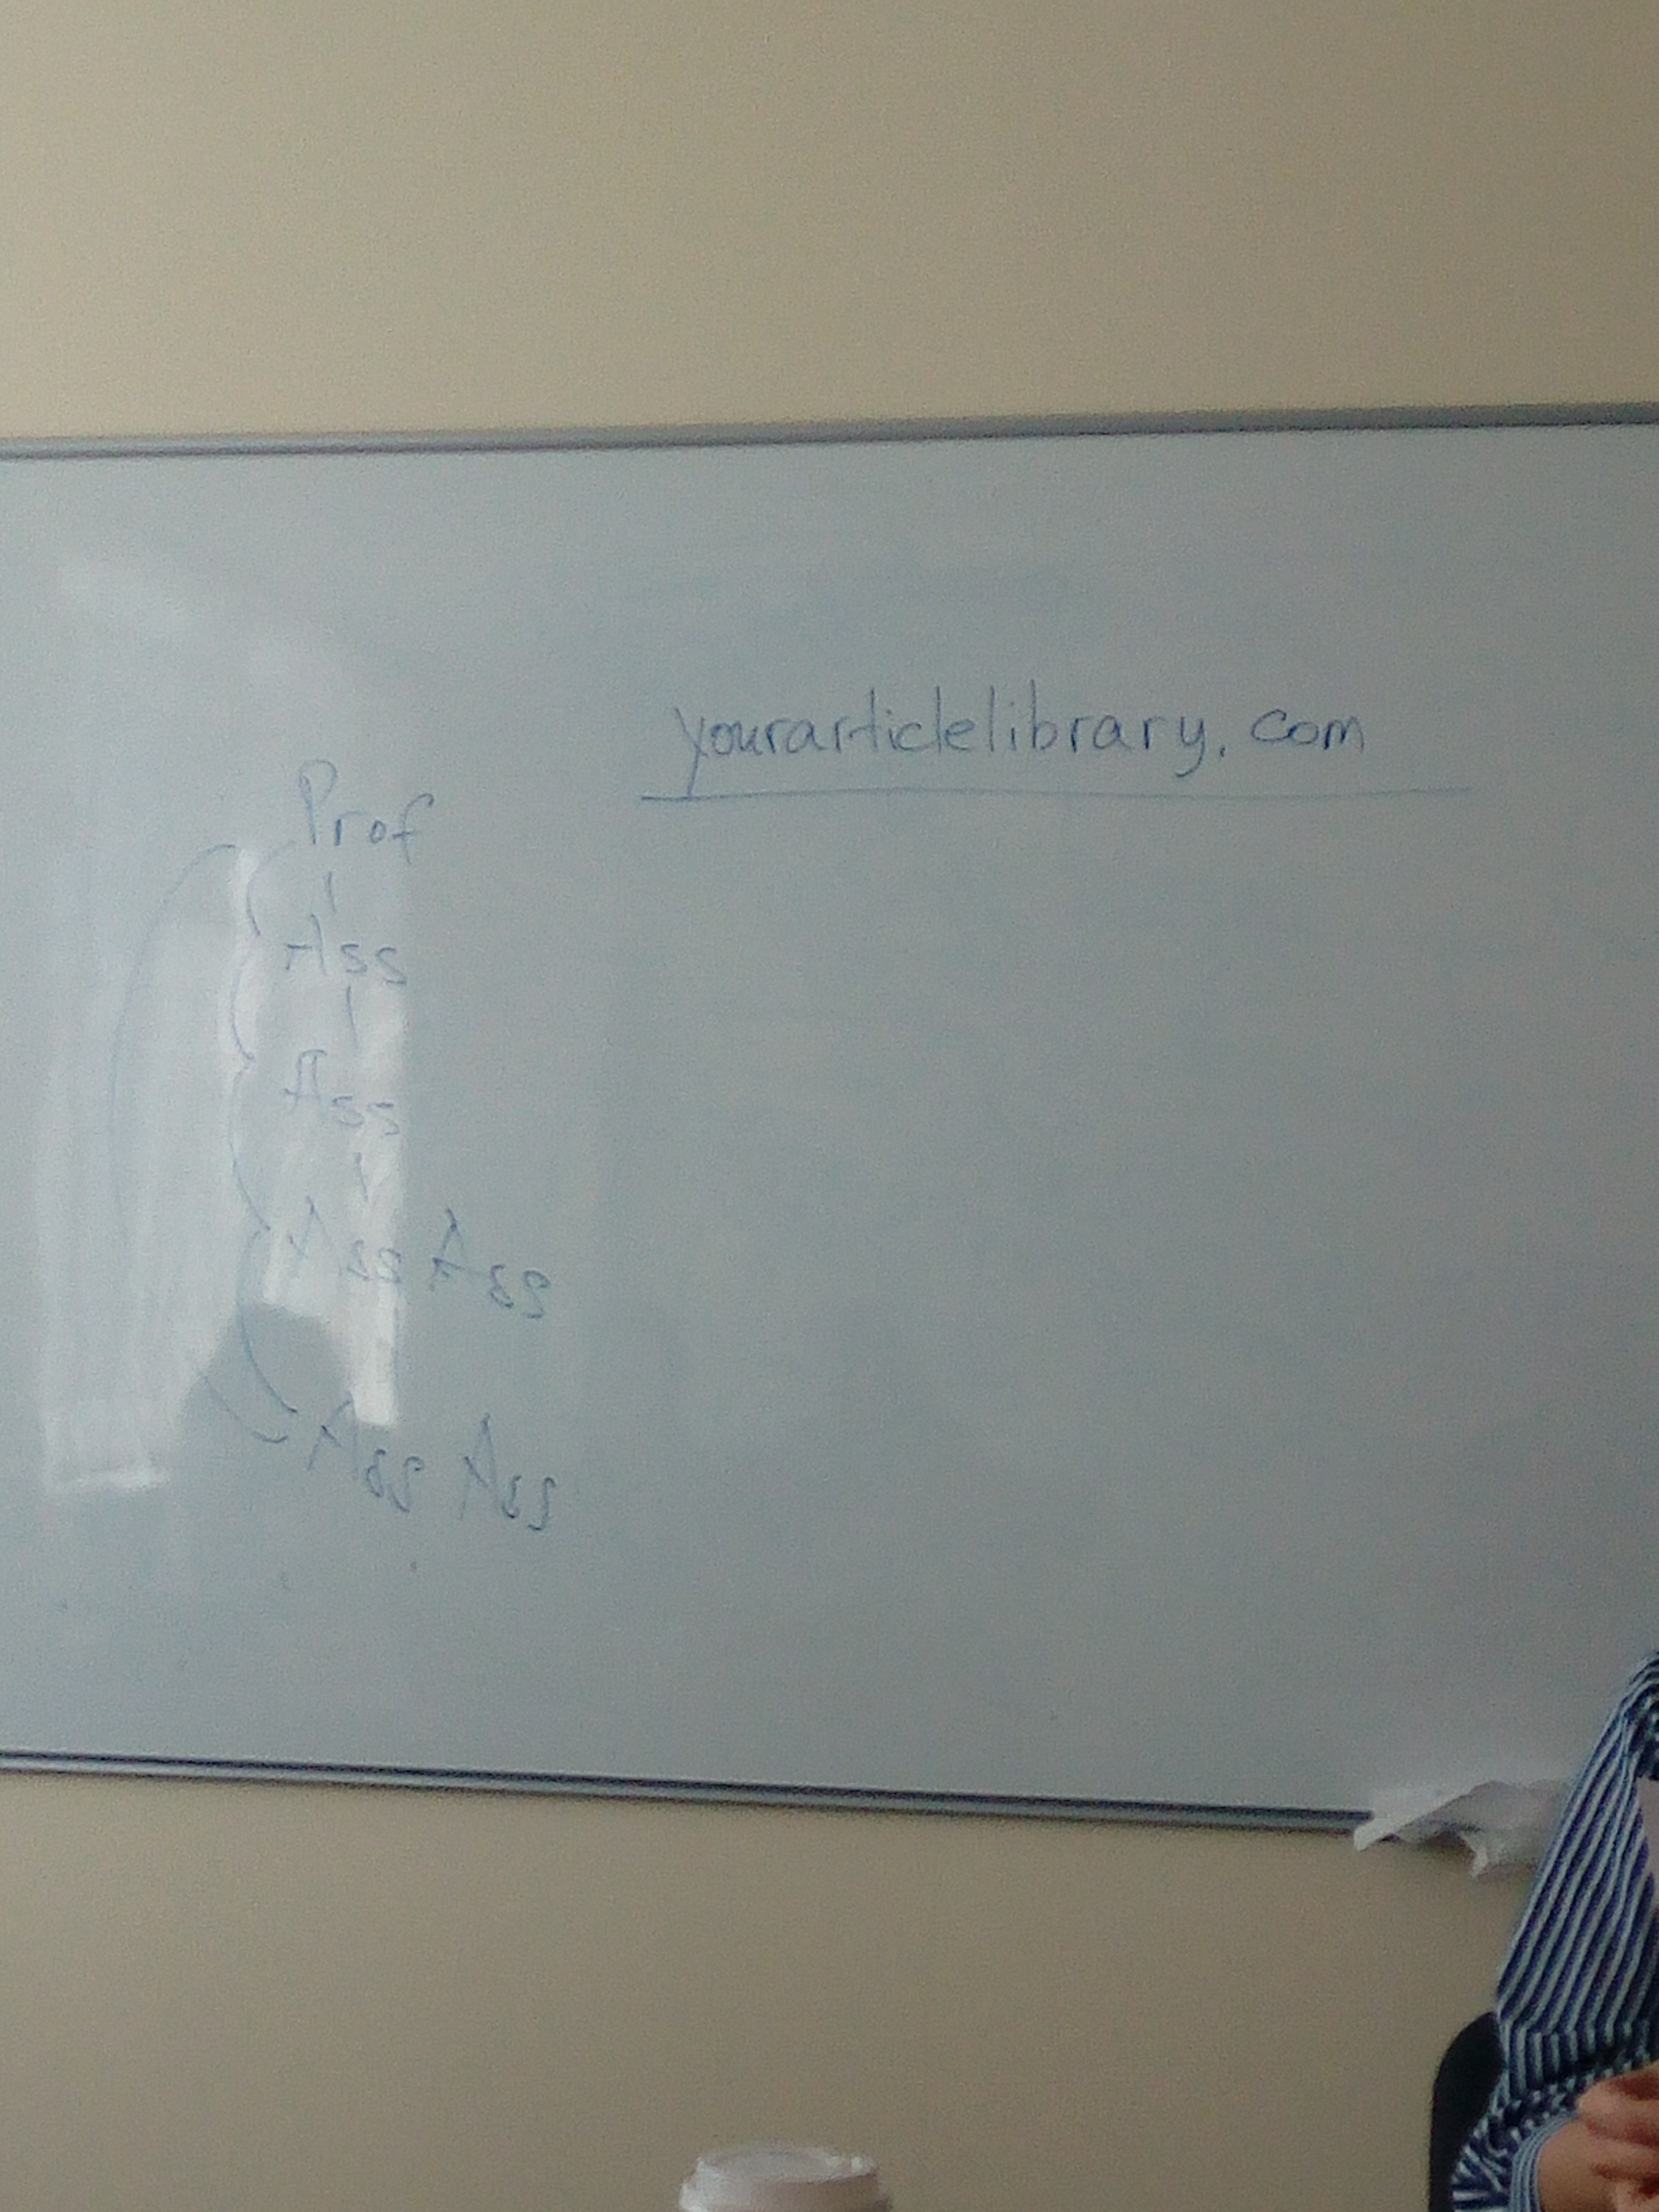 yourarticlelibrary.com
Prof
Ass
Ass
Ass Ass
Ass Ass